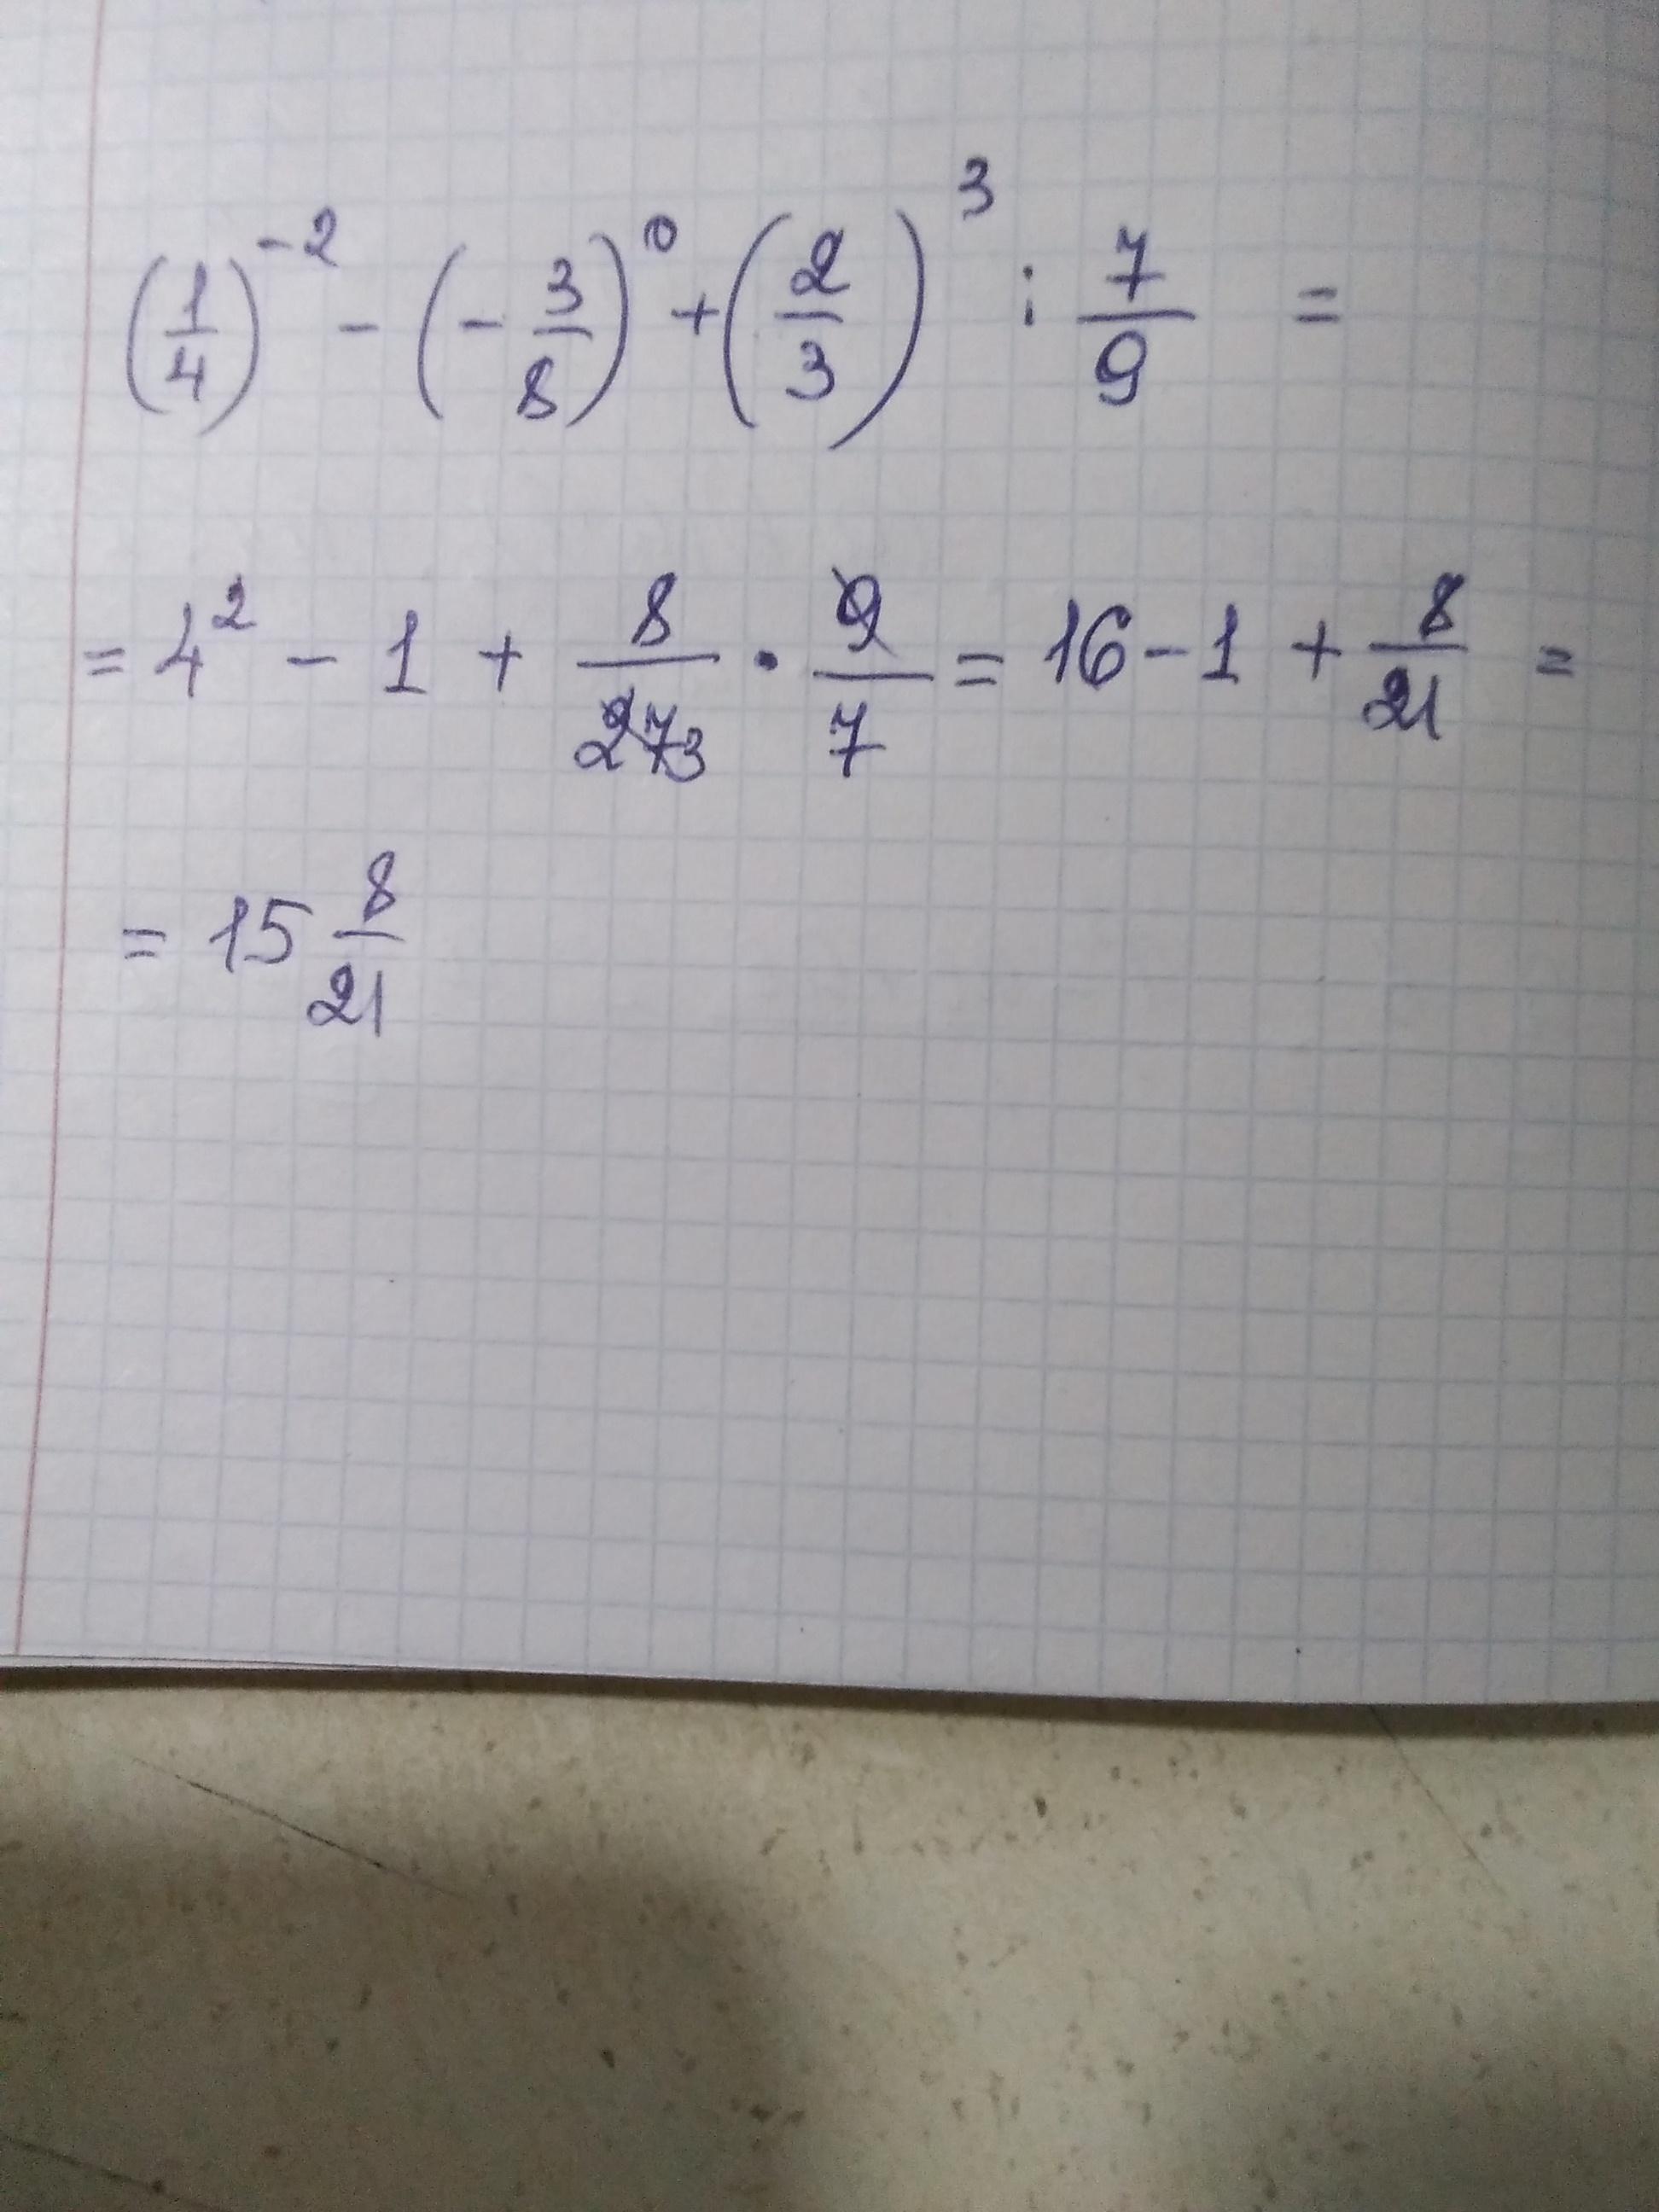 (1/4)^-2 - (-3/8)^0 + (2/3)^3 : 7/9 =
= 4^2 - 1 + 8/27 3 · 9/7 = 16 - 1 + 8/21 =
= 15 8/21